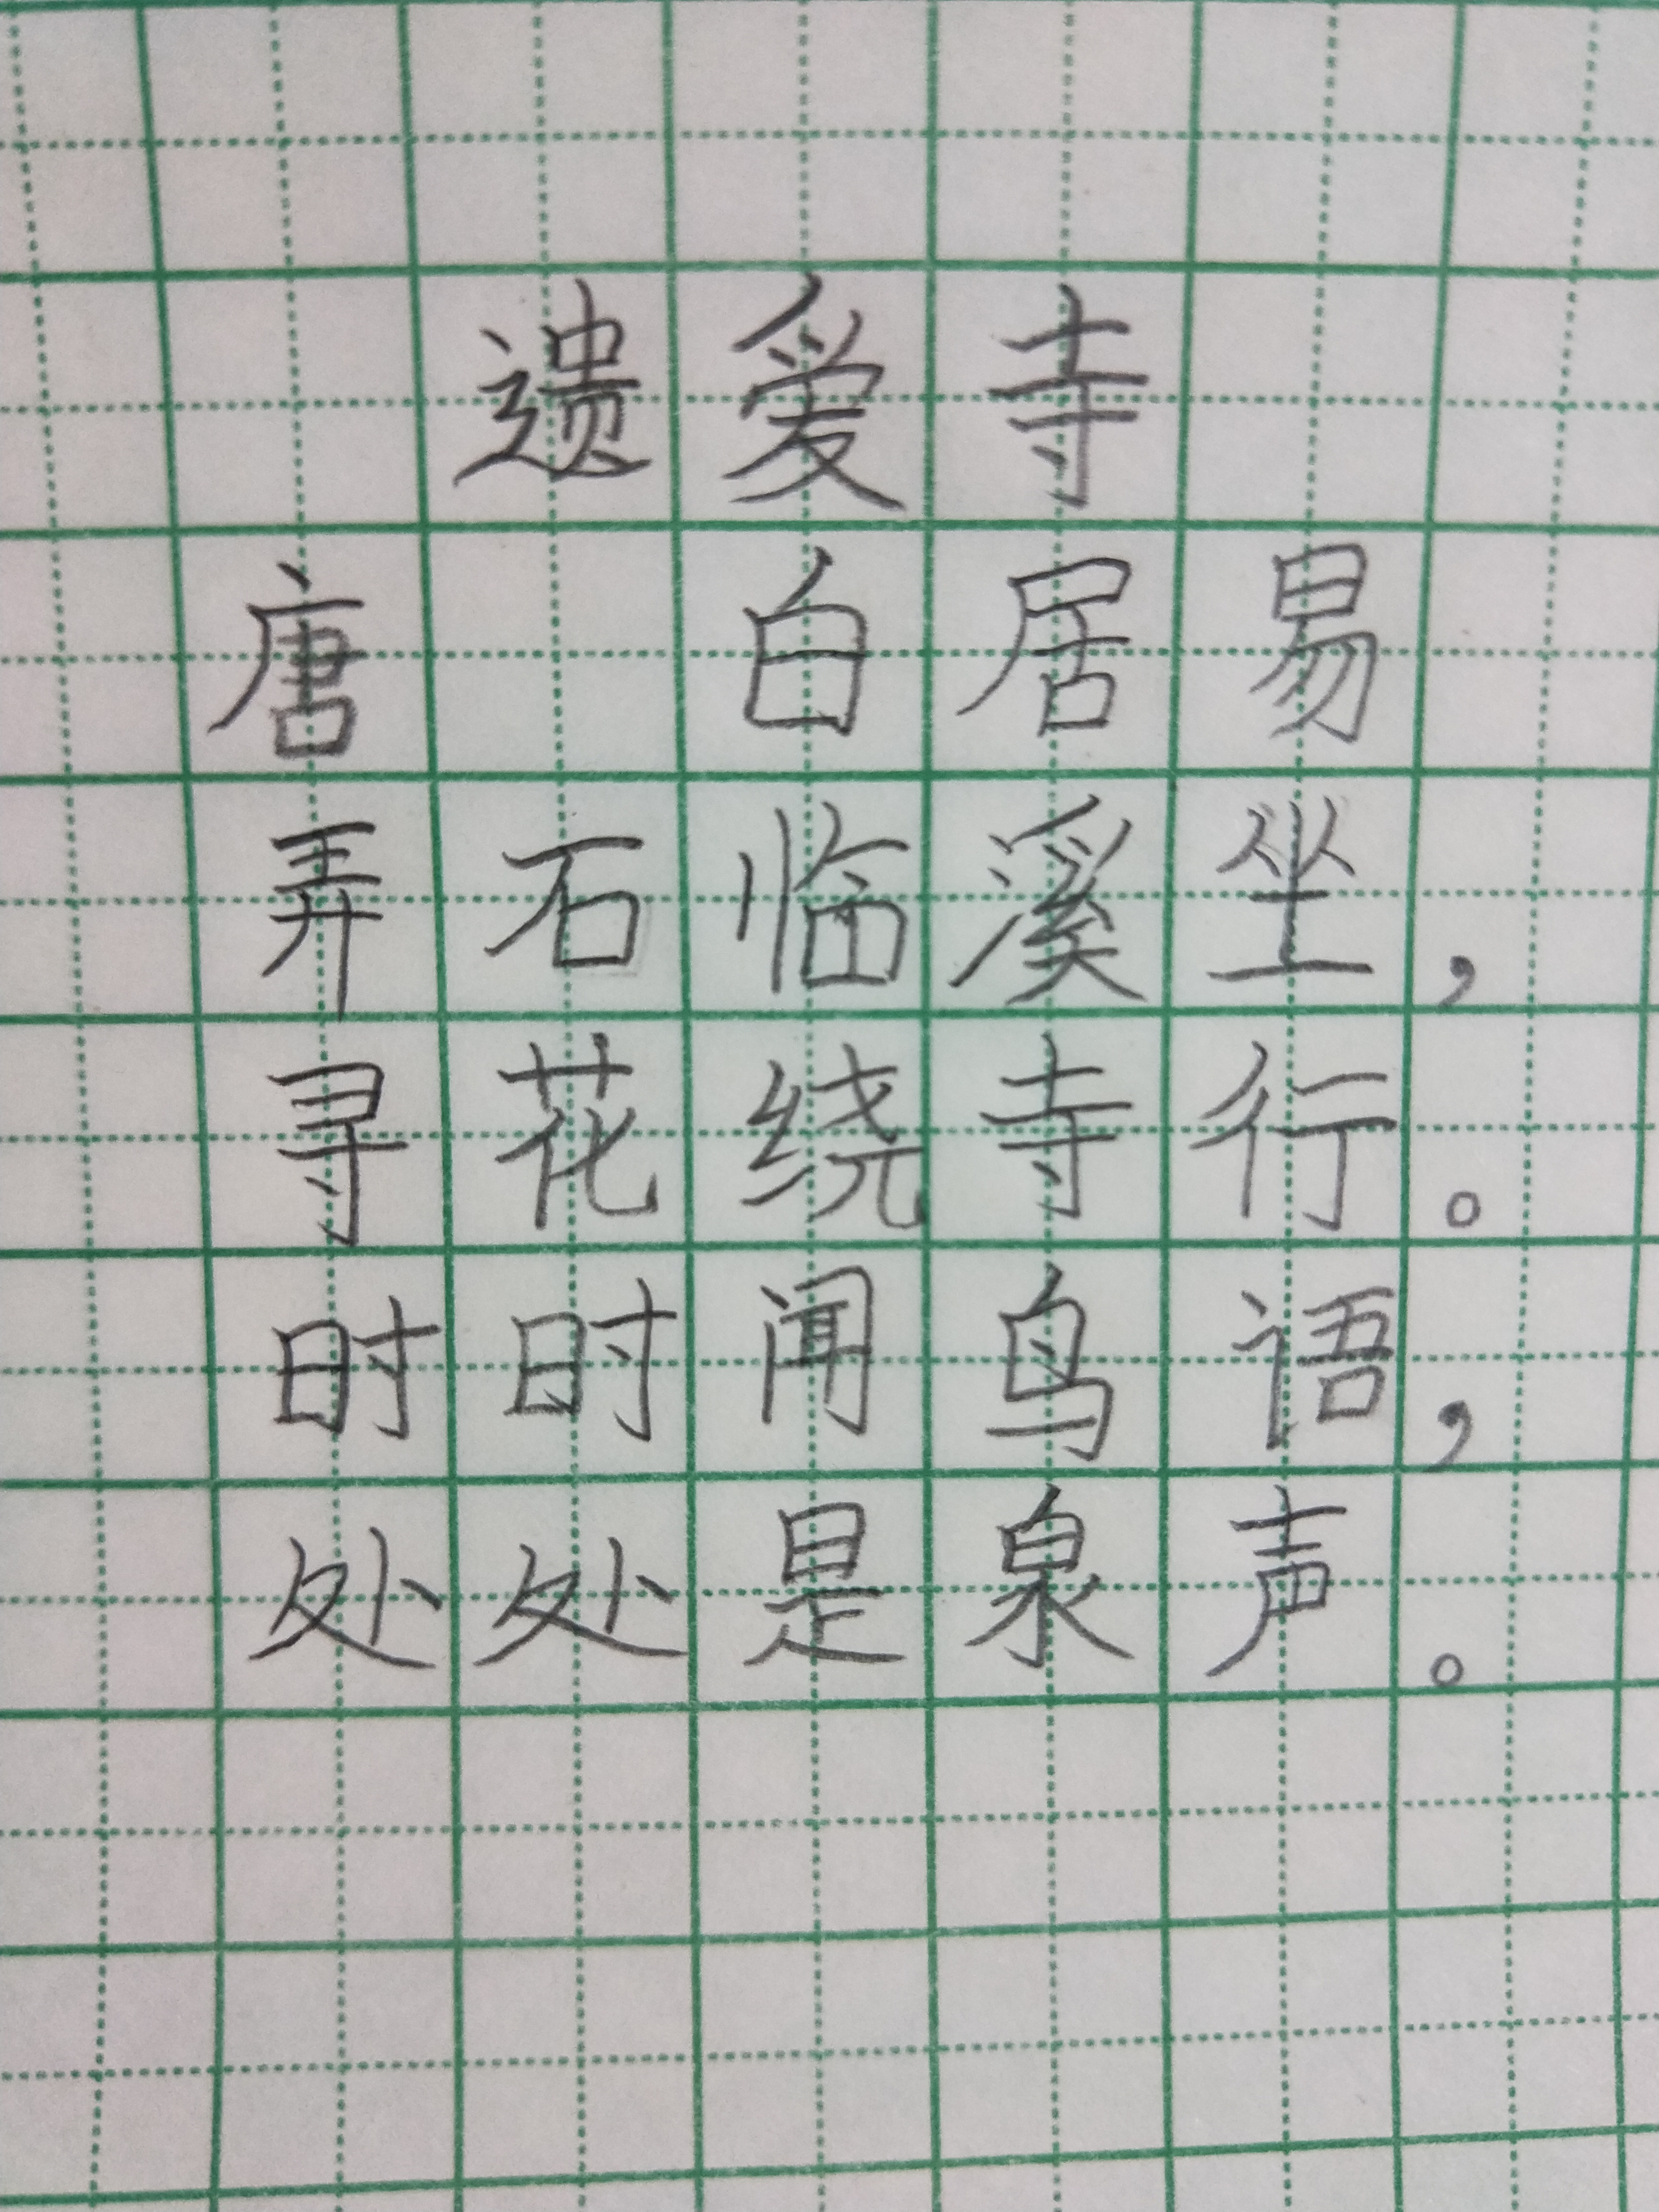 遗爱寺
唐 白居易
弄石临溪坐，
寻花绕寺行。
时时闻鸟语，
处处是泉声。